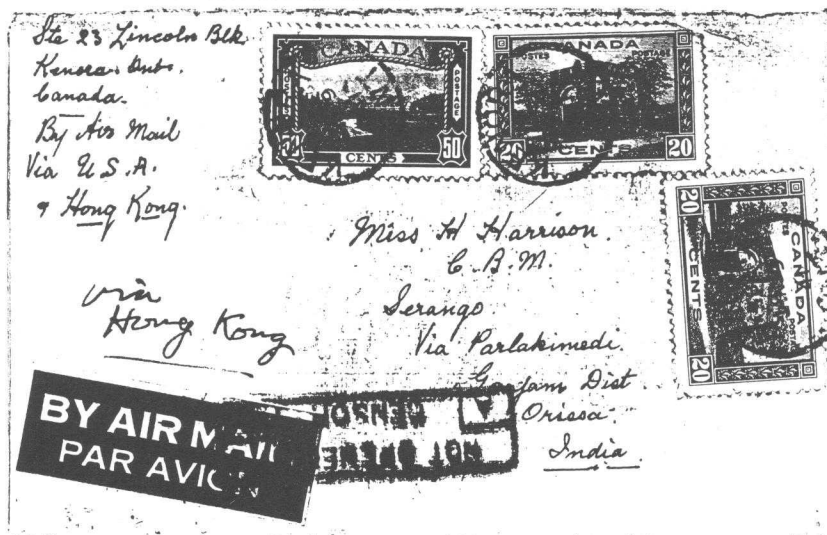 Ste 23 Lincoln Blk
Kenora Ont.
Canada.
By Air Mail
Via U.S.A.
& Hong Kong.
CANADA
POSTAGE
50
CENTS
CANADA
POSTES POSTAGE
20 CENTS 20
20
CANADA
CENTS
20
Miss H Harrison.
C.B.M.
Serango
Via Parlakimedi.
Ganjam Dist
Orissa.
India
via
Hong Kong
BY AIR MAIL
PAR AVION
NOT OPENED
CENSOR
A